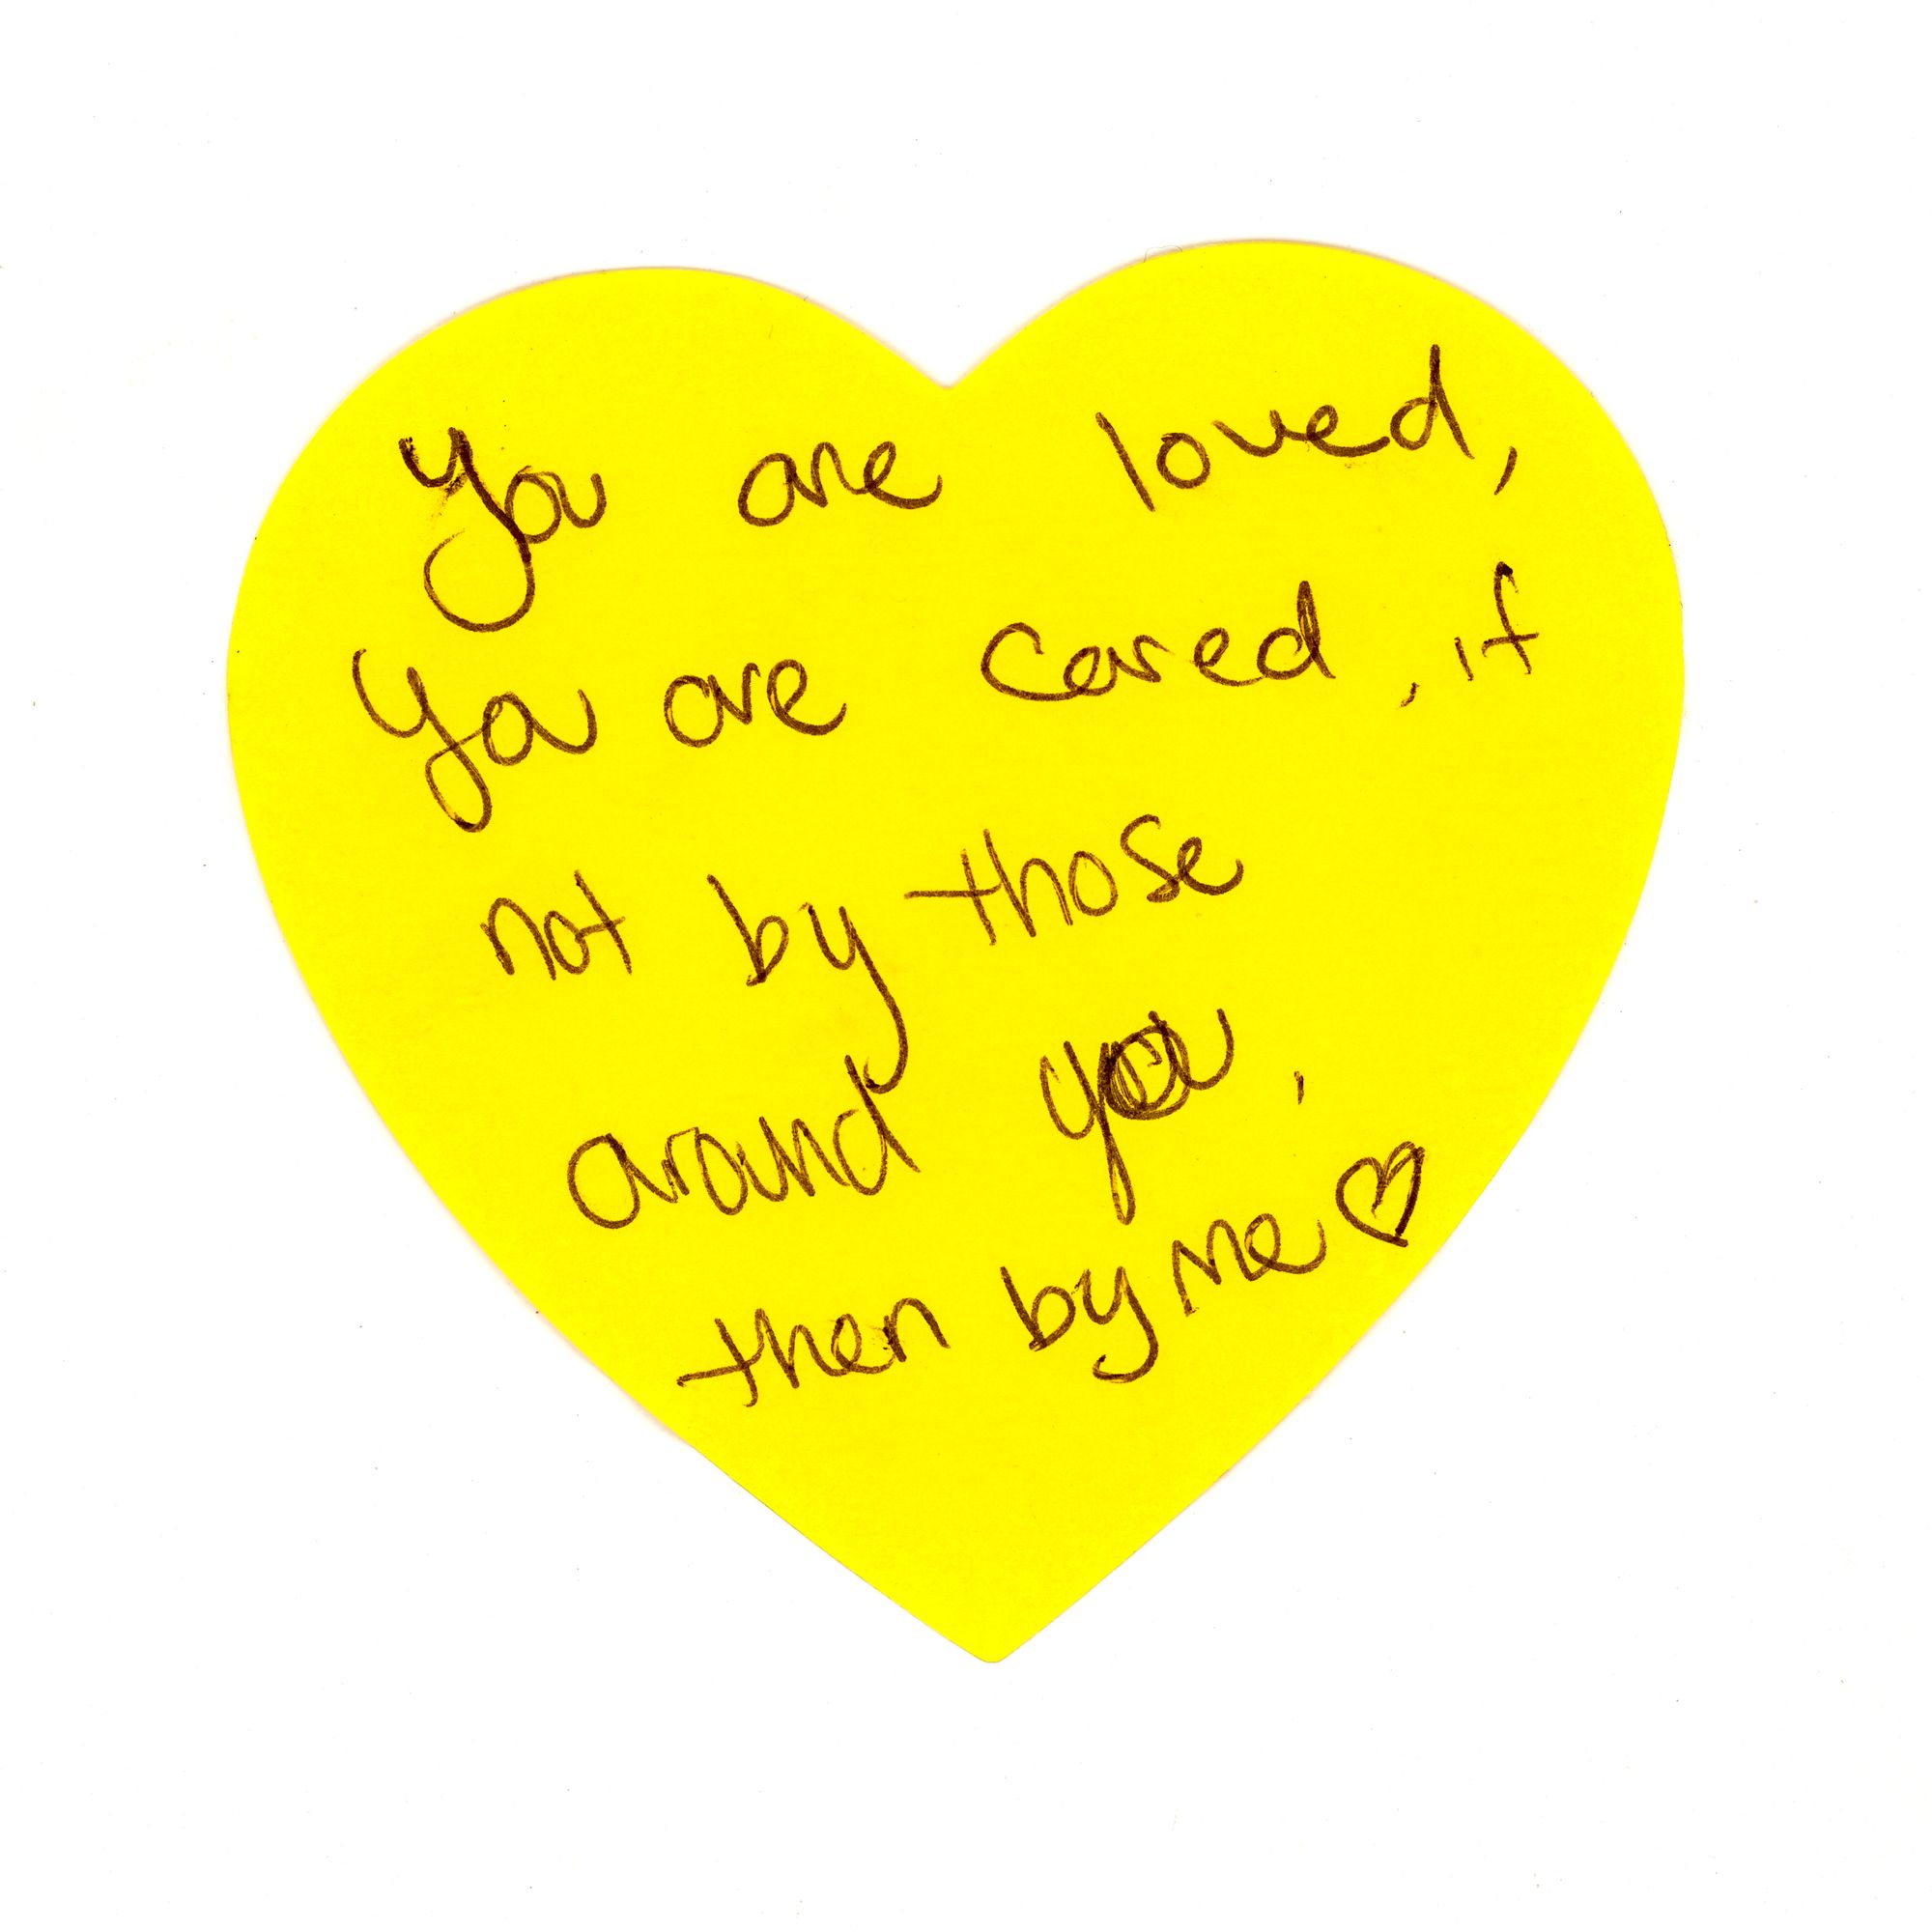 You are loved,
You are cared, if
not by those
around you,
then by me ♡